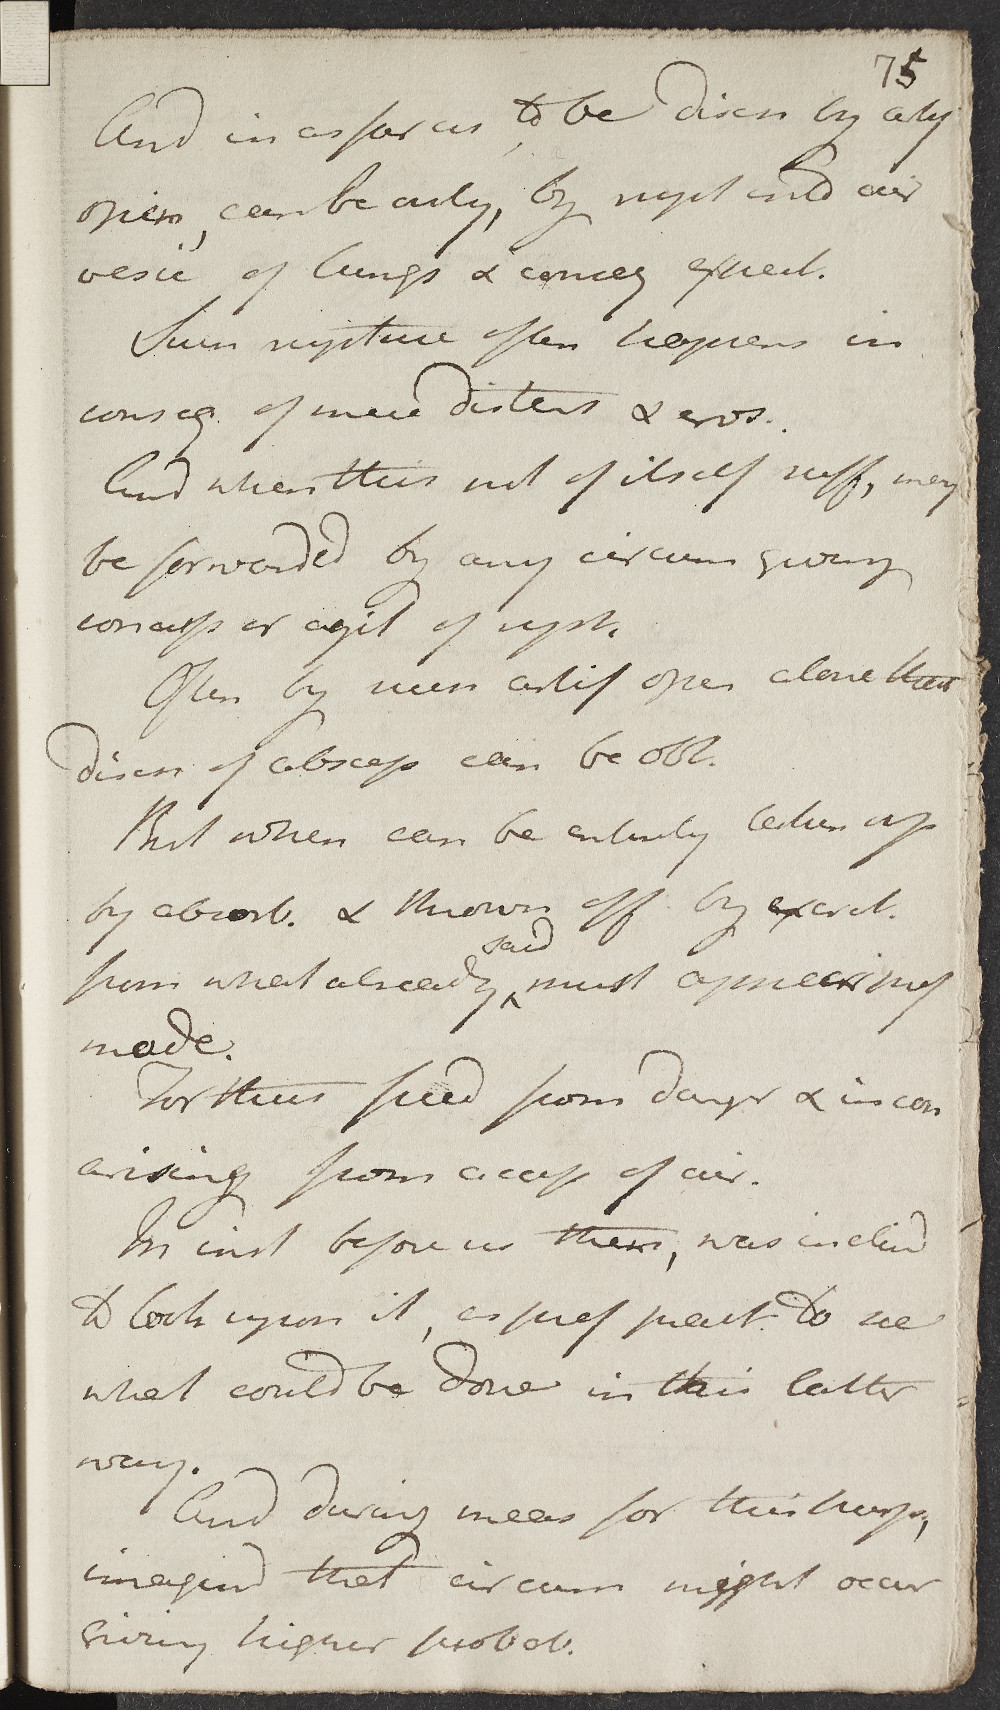 75
And in as far as, to be disch by any
open, can be only, by rupt into air
vesic of lungs & conseq expect.
Such rupture often happens in
conseq of mere distent & eros.
And when this not of itself suff, may
be forwarded by any circum giving
concuss or agit of syst.
Often by mean artif open alone that
disch of abscess can be obt.
But when can be entirely taken up
by absorb. & thrown off by excret.
from what already said, must appear pref
made.
For thus freed from dangr & incon
arising from access of air.
In inst before us then, was inclind
to look upon it, as pref pract. to see
what could be done in this latter
way.
And during meas for this purp,
imagind that circum might occur
giving higher probab.